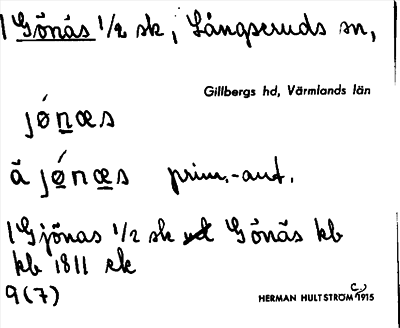 1 Gönäs 1/2 sk, Långseruds sn,
Gillbergs hd, Värmlands län
jǿnæs
ä jǿnæs prim.-aut.
1 Gjönas 1/2 sk Gönäs kb
kb 1811 sk
9(7)
HERMAN HULTSTRÖM 1915